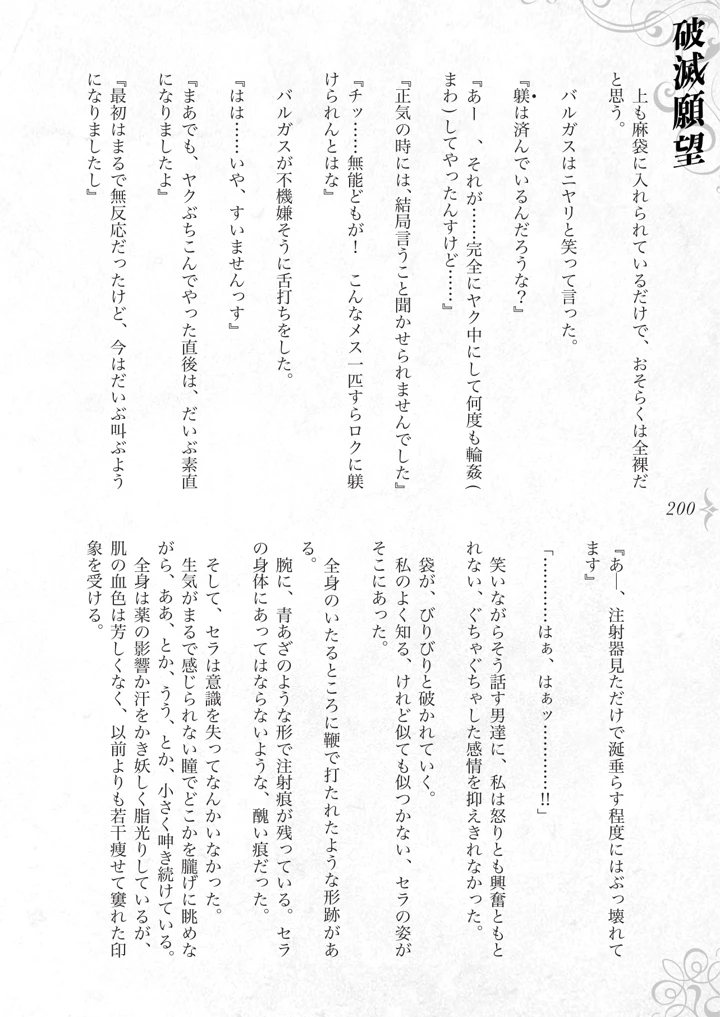 破滅願望
上も麻袋に入れられているだけで、おそらくは全裸だ
と思う。
バルガスはニヤリと笑って言った。
『躾は済んでいるんだろうな？』
『あー　、それが……完全にヤク中にして何度も輪姦（
まわ）してやったんすけど……』
『正気の時には、結局言うこと聞かせられませんでした』
『チッ……無能どもが！　こんなメス一匹すらロクに躾
けられんとはな』
バルガスが不機嫌そうに舌打ちをした。
『はは……いや、すいませんっす』
『まあでも、ヤクぶちこんでやった直後は、だいぶ素直
になりましたよ』
『最初はまるで無反応だったけど、今はだいぶ叫ぶよう
になりましたし』
200
『あ―、注射器見ただけで涎垂らす程度にはぶっ壊れて
ます』
「…………はぁ、はぁッ…………!!」
笑いながらそう話す男達に、私は怒りとも興奮ともと
れない、ぐちゃぐちゃした感情を抑えきれなかった。
袋が、びりびりと破かれていく。
私のよく知る、けれど似ても似つかない、セラの姿が
そこにあった。
全身のいたるところに鞭で打たれたような形跡があ
る。
腕に、青あざのような形で注射痕が残っている。セラ
の身体にあってはならないような、醜い痕だった。
そして、セラは意識を失ってなんかいなかった。
生気がまるで感じられない瞳でどこかを朧げに眺めな
がら、ああ、とか、うう、とか、小さく呻き続けている。
全身は薬の影響か汗をかき妖しく脂光りしているが、
肌の血色は芳しくなく、以前よりも若干痩せて窶れた印
象を受ける。